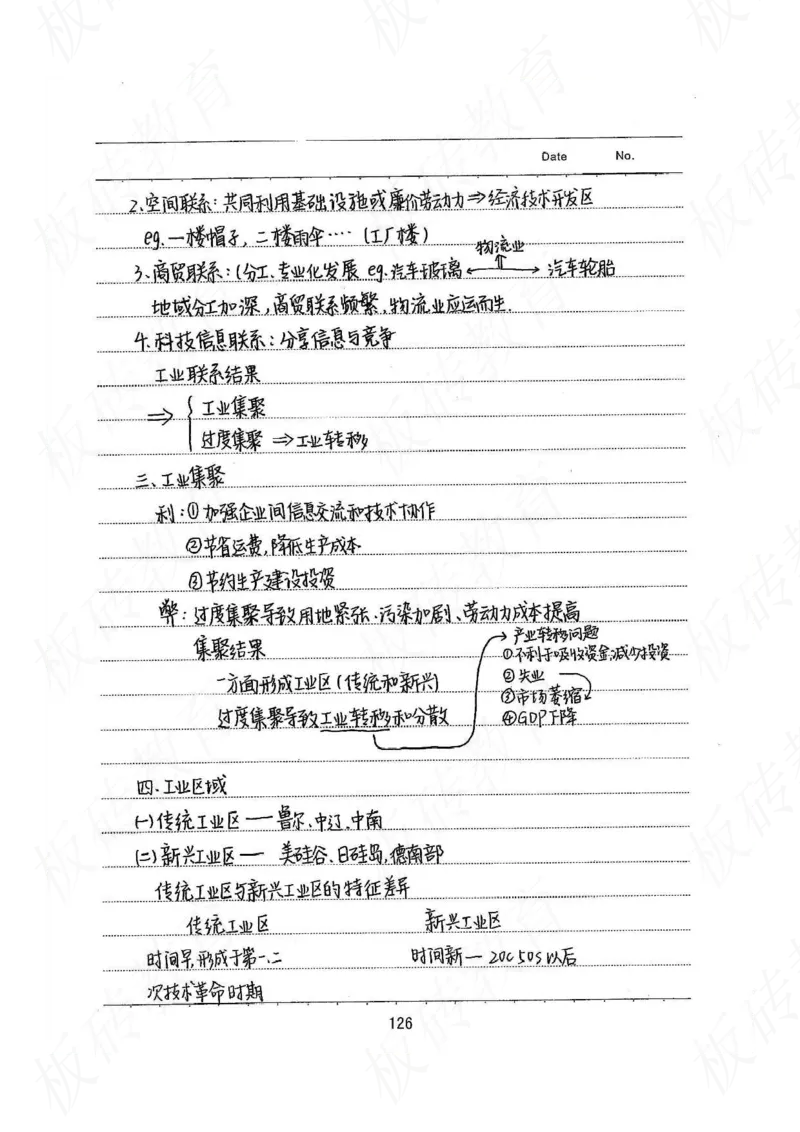 Date No.
2、空间联系：共同利用基础设施或廉价劳动力⇒经济技术开发区
eg.一楼帽子，二楼雨伞····（工厂楼）
物流业
⇑
3、商贸联系：（分工、专业化发展 eg.汽车玻璃⟷汽车轮胎
地域分工加深，商贸联系频繁，物流业应运而生.
4.科技信息联系：分享信息与竞争
工业联系结果
⇒ { 工业集聚
过度集聚 ⇒工业转移
三、工业集聚
利：①加强企业间信息交流和技术协作
②节省运费，降低生产成本
③节约生产建设投资
弊：过度集聚导致用地紧张、污染加剧、劳动力成本提高
集聚结果
一方面形成工业区（传统和新兴）
过度集聚导致工业转移和分散
产业转移问题
①不利于吸收资金,减少投资
②失业
③市场萎缩
④GDP下降
四、工业区域
(一)传统工业区——鲁尔、中辽、中南
(二)新兴工业区—— 美硅谷、日硅岛,德南部
传统工业区与新兴工业区的特征差异
传统工业区 新兴工业区
时间早,形成于第一、二 时间新—20C 50S以后
次技术革命时期
126
板砖教育